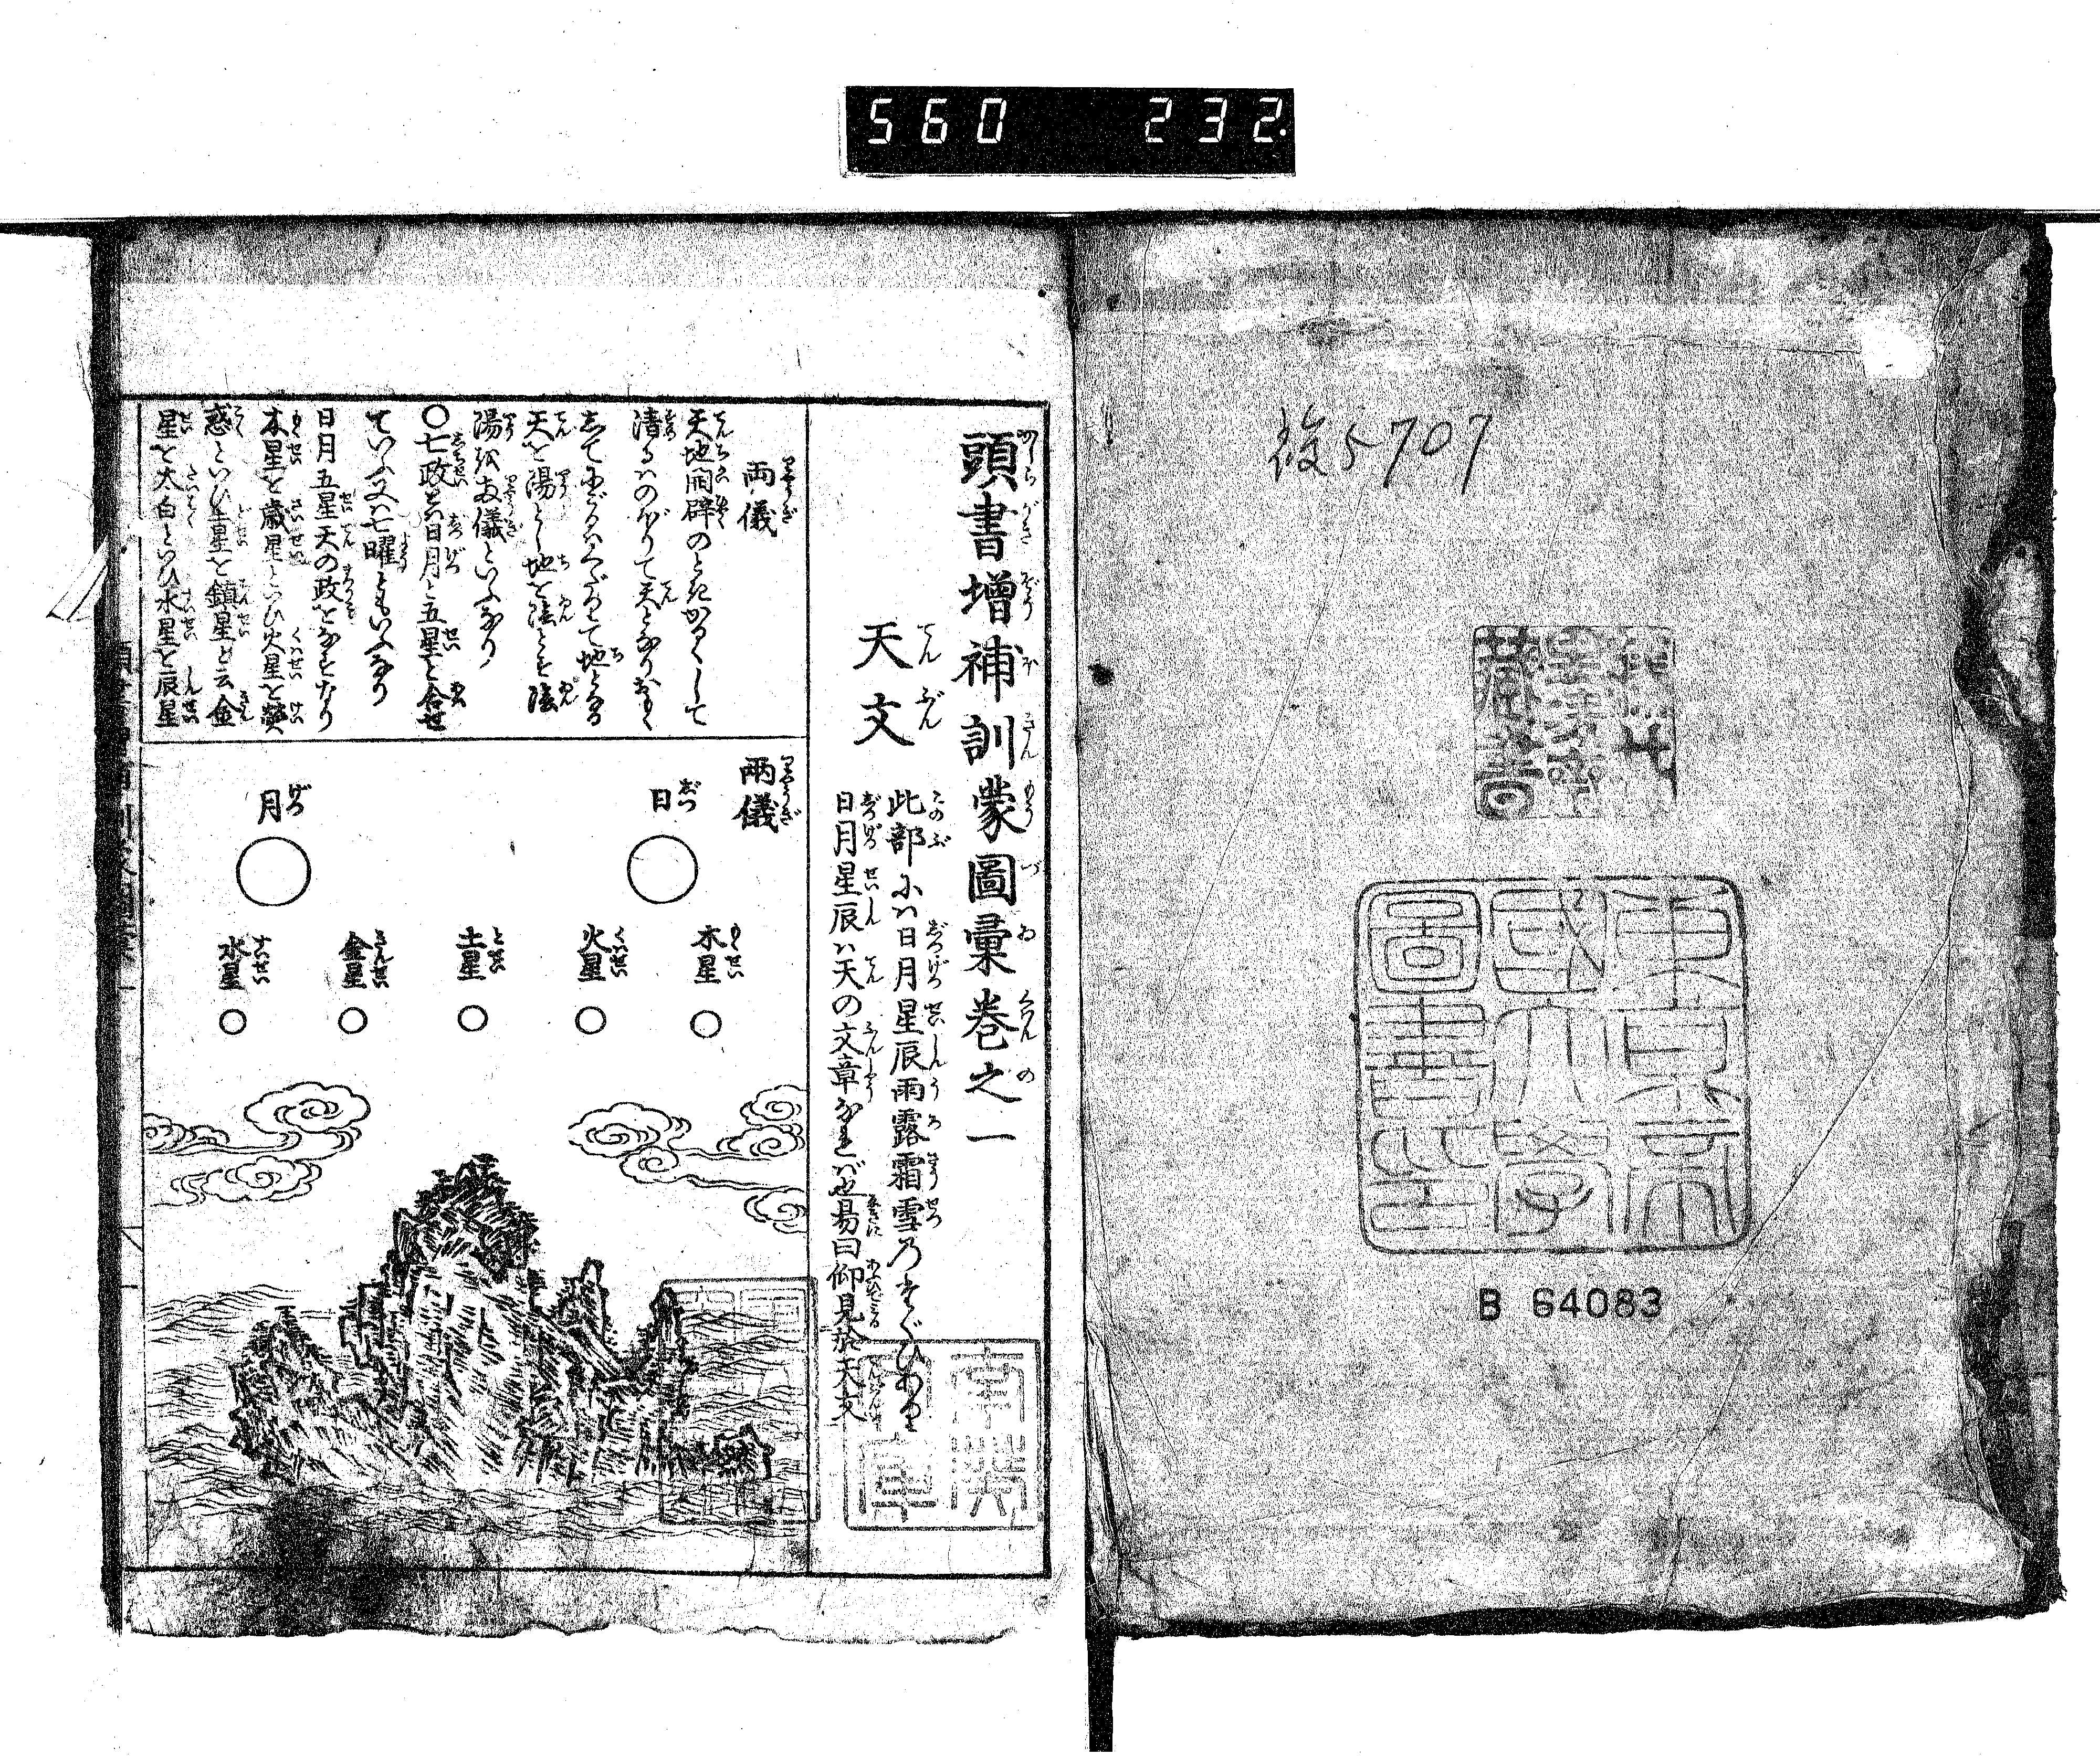 560 232
後5707
東京帝
國大學
圖書印
B 64083
頭書増補訓蒙圖彙巻之一
天文
此部にハ日月星辰雨露霜雪乃たぐひあり
日月星辰ハ天の文章なれバ也易曰仰見於天文
両儀
天地開闢のときかろくして
清るハのぼりて天となりおもく
天を陽とし地を陰とす陰
陽を両儀といふなり
〇七政とハ日月と五星を合せ
ていふ又ハ七曜ともいふなり
日月五星天の政をなすなり
木星を歳星といひ火星を熒
惑といひ土星を鎮星と云金
星を太白といひ水星を辰星
両儀
日
月
木星
火星
土星
金星
水星
南葵
文庫